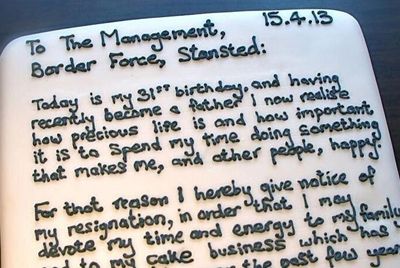 15.4.13
To The Management,
Border Force, Stansted:
Today is my 31ST birthday, and having
recently become a father I now realise
how precious life is and how important
it is to spend my time doing something
that makes me, and other people, happy.
For that reason I hereby give notice of
my resignation, in order that I may
devote my time and energy to my family
and to my cake business which has
the past few years